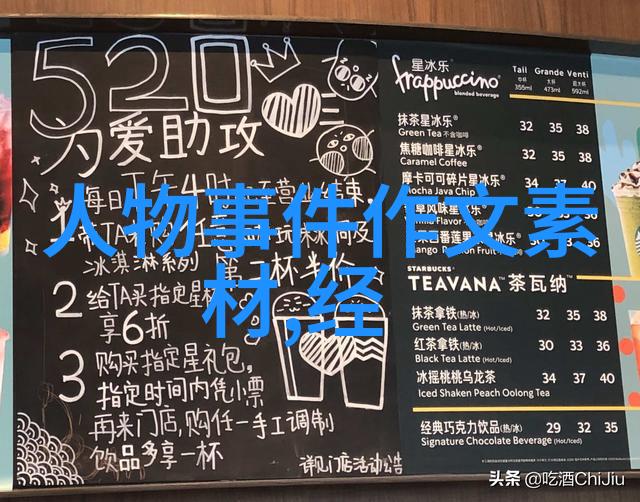 520
为爱助攻
每日下午4时
1
冰淇淋系列 第二杯半价
2 给TA买指定星
享6折
3 购买指定星礼包,
指定时间内凭小票
再来门店,购任一手工调制
饮品多享一杯
详见门店活动公告
星冰乐®
frappuccino®
blended beverage
Tall Grande Venti
中杯 大杯 超大杯
355ml 473ml 592ml
抹茶星冰乐® 32 35 38
Green Tea 不含咖啡
焦糖咖啡星冰乐® 32 35 38
Caramel Coffee
摩卡可可碎片星冰乐® 34 37 40
Mocha Java Chip
草风味星冰乐®
Flavor
百番莲果 星冰乐® 36
Mango Passion Fruit
STARBUCKS®
TEAVANA™ 茶瓦纳™
抹茶拿铁(热/冰) 32 35 38
Green Tea Latte (Hot/Iced)
红茶拿铁(热/冰) 30 33 36
Black Tea Latte (Hot/Iced)
冰摇桃桃乌龙茶 34 37 40
Iced Shaken Peach Oolong Tea
经典巧克力饮品(热/冰) 29 32 35
Signature Chocolate Beverage (Hot/Iced)
人物事件作文素
材,经
头条 @吃酒ChiJiu